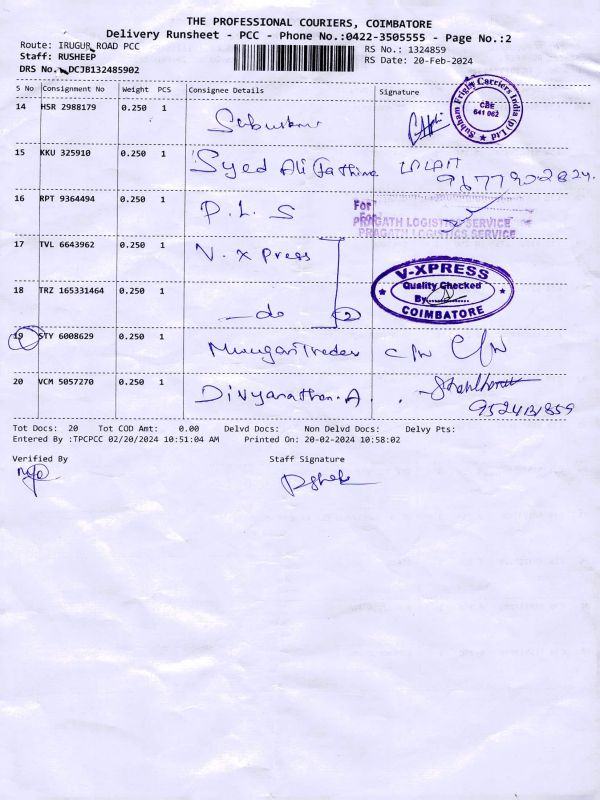 THE PROFESSIONAL COURIERS, COIMBATORE
Delivery Runsheet - PCC - Phone No.:0422-3505555 - Page No.:2
Route: IRUGUR ROAD PCC
RS No.: 1324859
Staff: RUSHEEP
RS Date: 20-Feb-2024
DRS No.: DCJB132485902
S No Consignment No Weight PCS Consignee Details Signature
14 HSR 2988179 0.250 1
Subham Frigh Carriers India (p) Ltd
CBE
641 062
15 KKU 325910 0.250 1 Syed Ali Fathima
16 RPT 9364494 0.250 1 D. L. S
For
PRAGATH LOGISTICS SERVICE
PRAGATH LOGISTICS SERVICE
17 TVL 6643962 0.250 1 V. X Press
V-XPRESS
Quality Checked
By
COIMBATORE
18 TRZ 165331464 0.250 1 -do 2
19 STY 6008629 0.250 1 Murugan Trader C/N C/N
20 VCM 5057270 0.250 1 Divyanathan. A
Tot Docs: 20 Tot COD Amt: 0.00 Delvd Docs: Non Delvd Docs: Delvy Pts:
Entered By :TPCPCC 02/20/2024 10:51:04 AM Printed On: 20-02-2024 10:58:02
Verified By Staff Signature